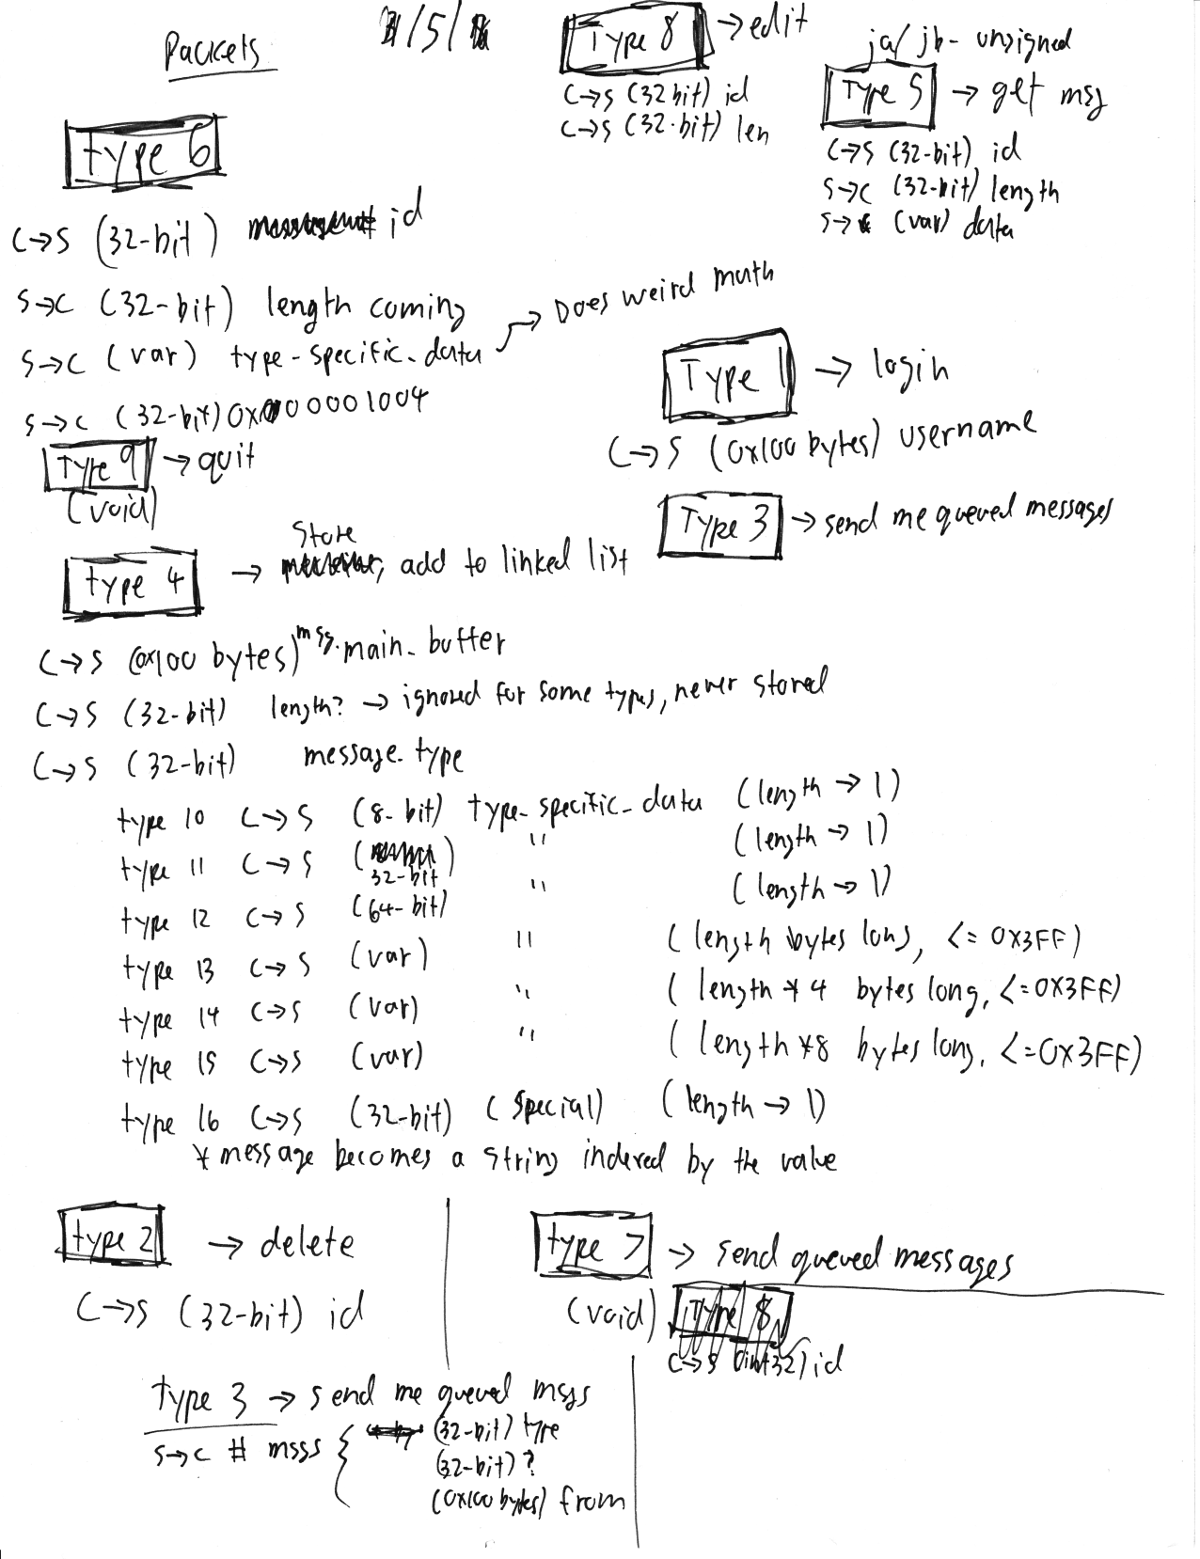 Packets
/5/
Type 8 → edit
C→S (32bit) id
C→S (32-bit) len
ja/jb - unsigned
Type 5 → get msg
C→S (32-bit) id
S→C (32-bit) length
S→ (var) data
type 6
C→S (32-bit) id
S→C (32-bit) length coming
S→C (var) type-specific-data → Does weird math
S→C (32-bit) 0x00001004
Type 9 → quit
(void)
Type 1 → login
C→S (0x100 bytes) username
Type 3 → send me queued messages
type 4 → store, add to linked list
C→S (0x100 bytes) msg.main_buffer
C→S (32-bit) length? → ignored for some types, never stored
C→S (32-bit) message_type
type 10 C→S (8-bit) type-specific-data (length → 1)
type 11 C→S (32-bit) " (length → 1)
type 12 C→S (64-bit) " (length → 1)
type 13 C→S (var) " (length bytes long, <= 0x3FF)
type 14 C→S (var) " (length * 4 bytes long, <= 0x3FF)
type 15 C→S (var) " (length *8 bytes long, <= 0x3FF)
type 16 C→S (32-bit) (special) (length → 1)
* message becomes a string indexed by the value
type 2 → delete
C→S (32-bit) id
type 7 → send queued messages
(void)
Type 8
C→S (int32) id
type 3 → send me queued msgs
S→C # msgs { (32-bit) type
(32-bit) ?
(0x100 bytes) from